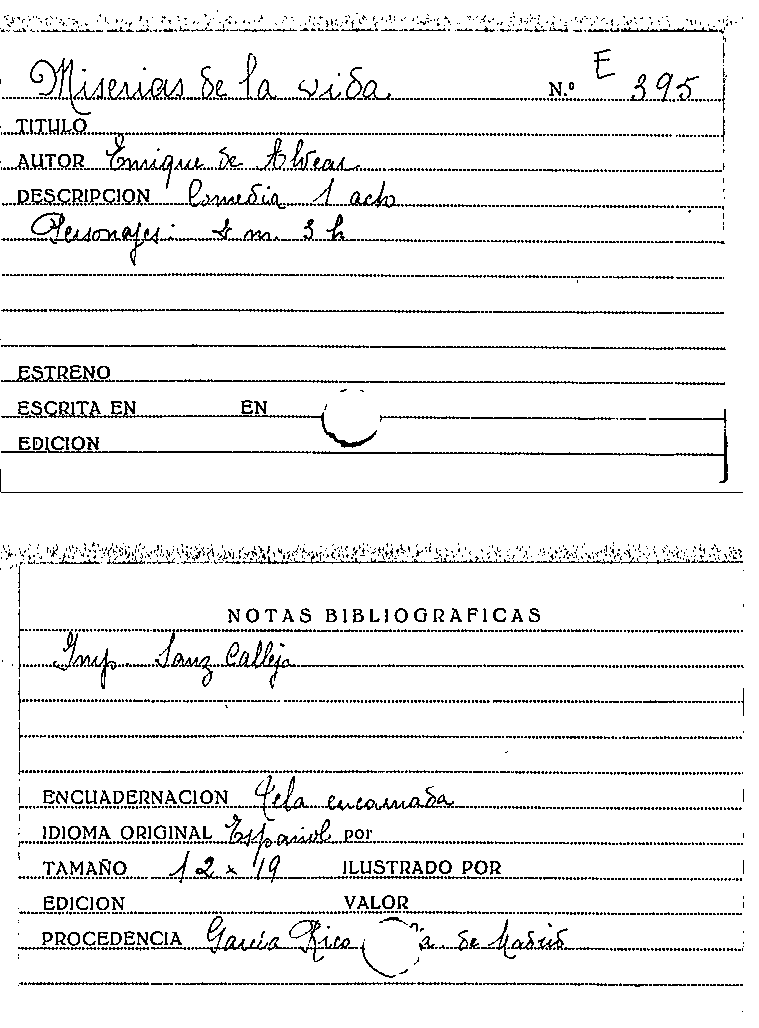 Miserias de la vida. N.º E 395
TITULO
AUTOR Enrique de Alvear.
DESCRIPCION Comedia 1 acto
Personajes: m. 3 h
ESTRENO
ESCRITA EN EN
EDICION
NOTAS BIBLIOGRAFICAS
Imp. Sanz Calleja
ENCUADERNACION Tela encarnada
IDIOMA ORIGINAL Español por
TAMAÑO 12 x 19 ILUSTRADO POR
EDICION VALOR
PROCEDENCIA García Rico a. de Madrid